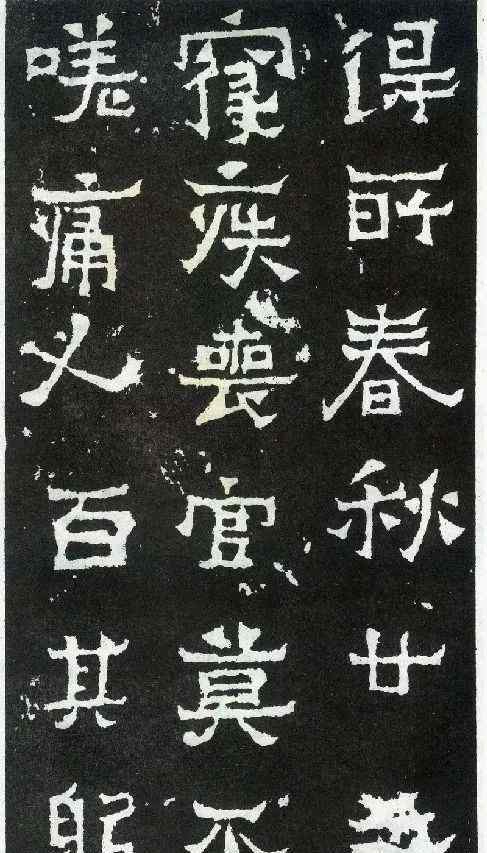 得所春秋廿
寢疾喪官莫不
嗟痛人百其躬